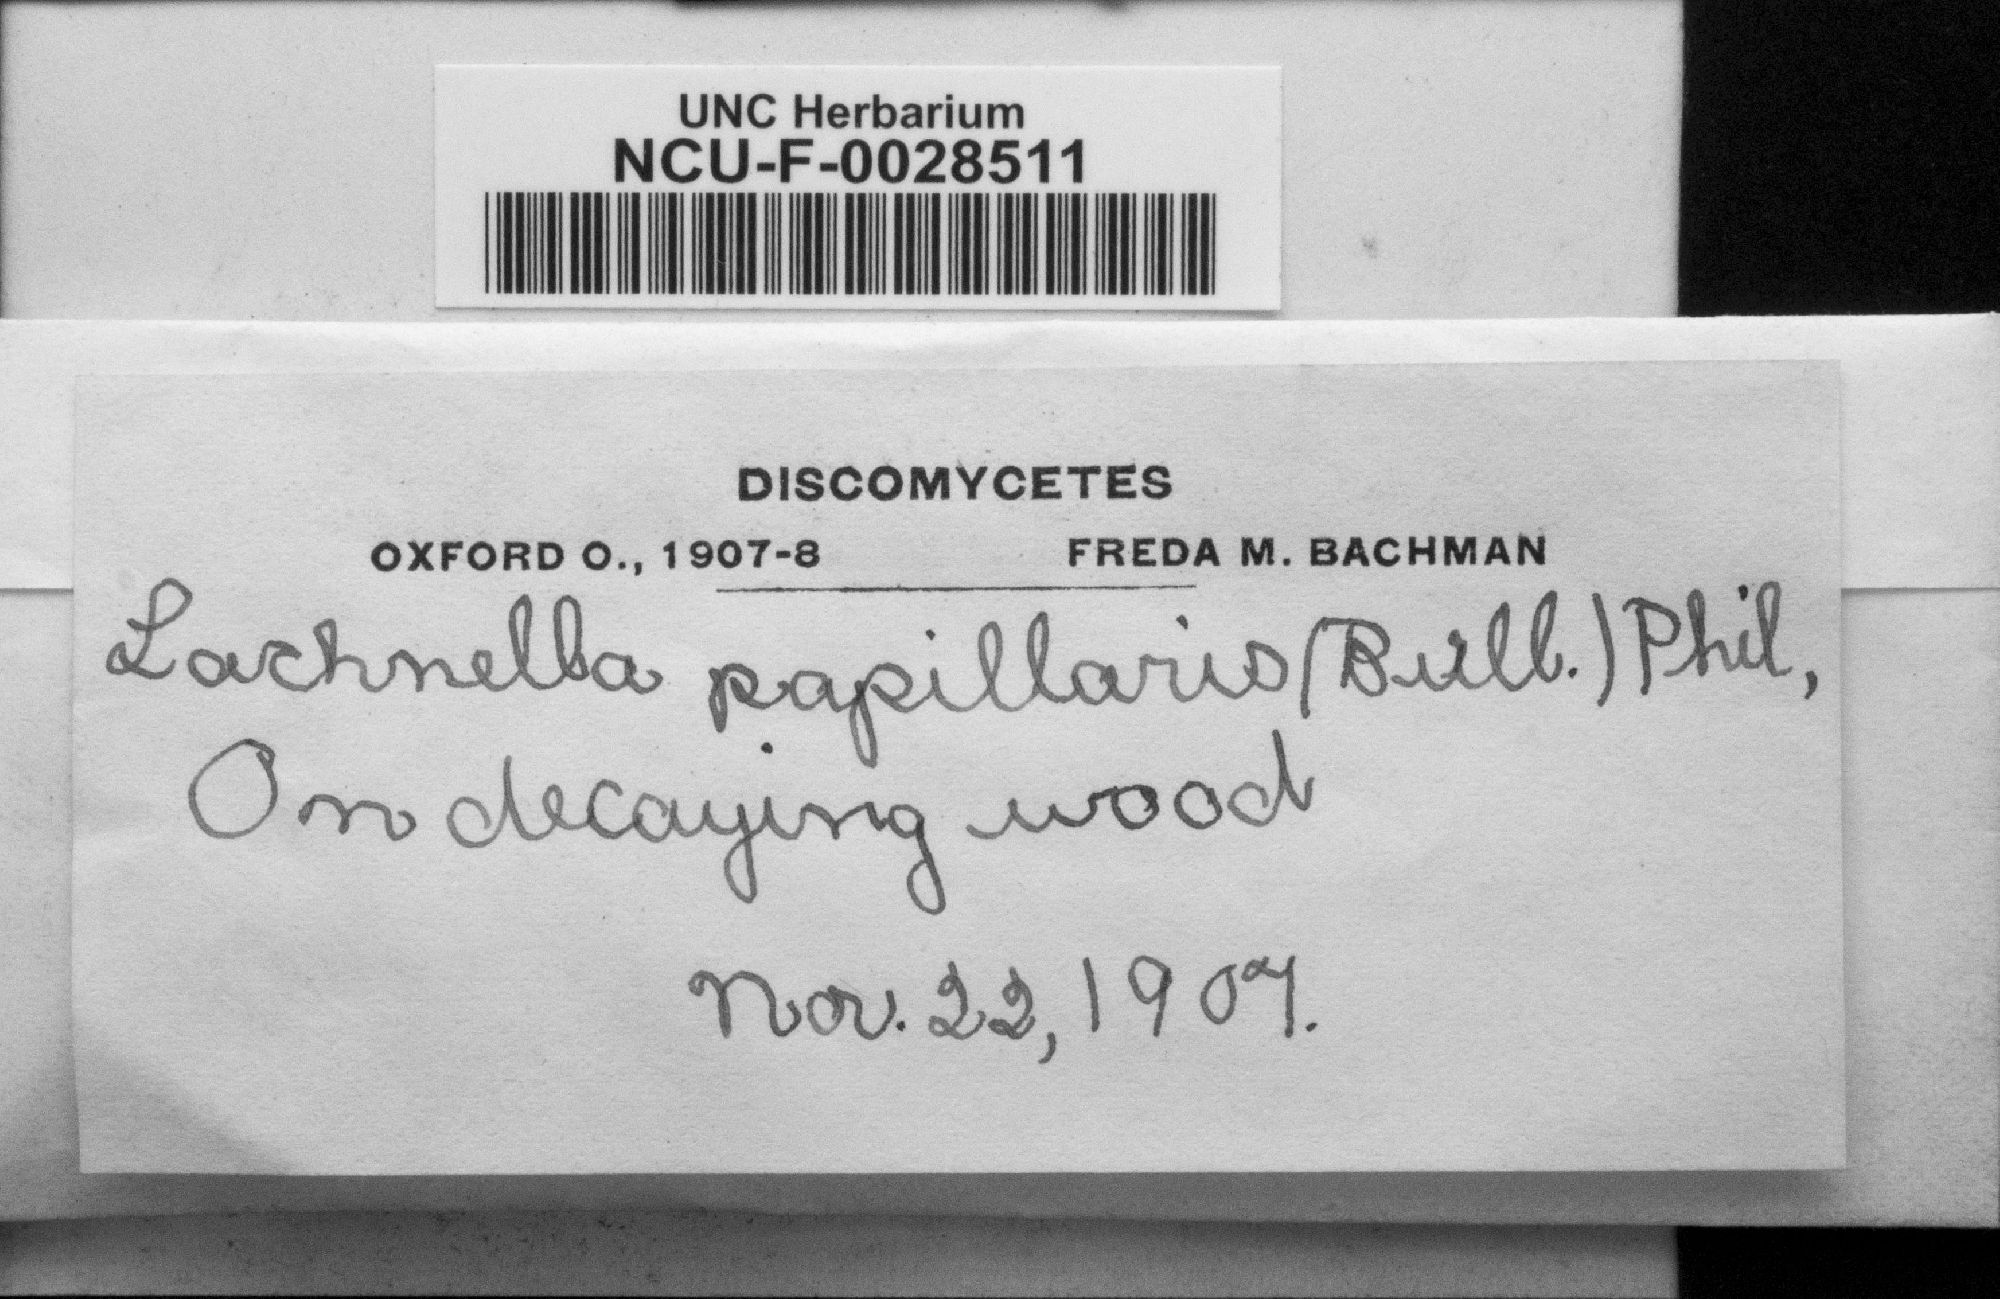 UNC Herbarium
NCU-F-0028511
DISCOMYCETES
OXFORD O., 1907-8 FREDA M. BACHMAN
Lachnella papillaris (Bull.) Phil,
On decaying wood
Nov. 22, 1907.